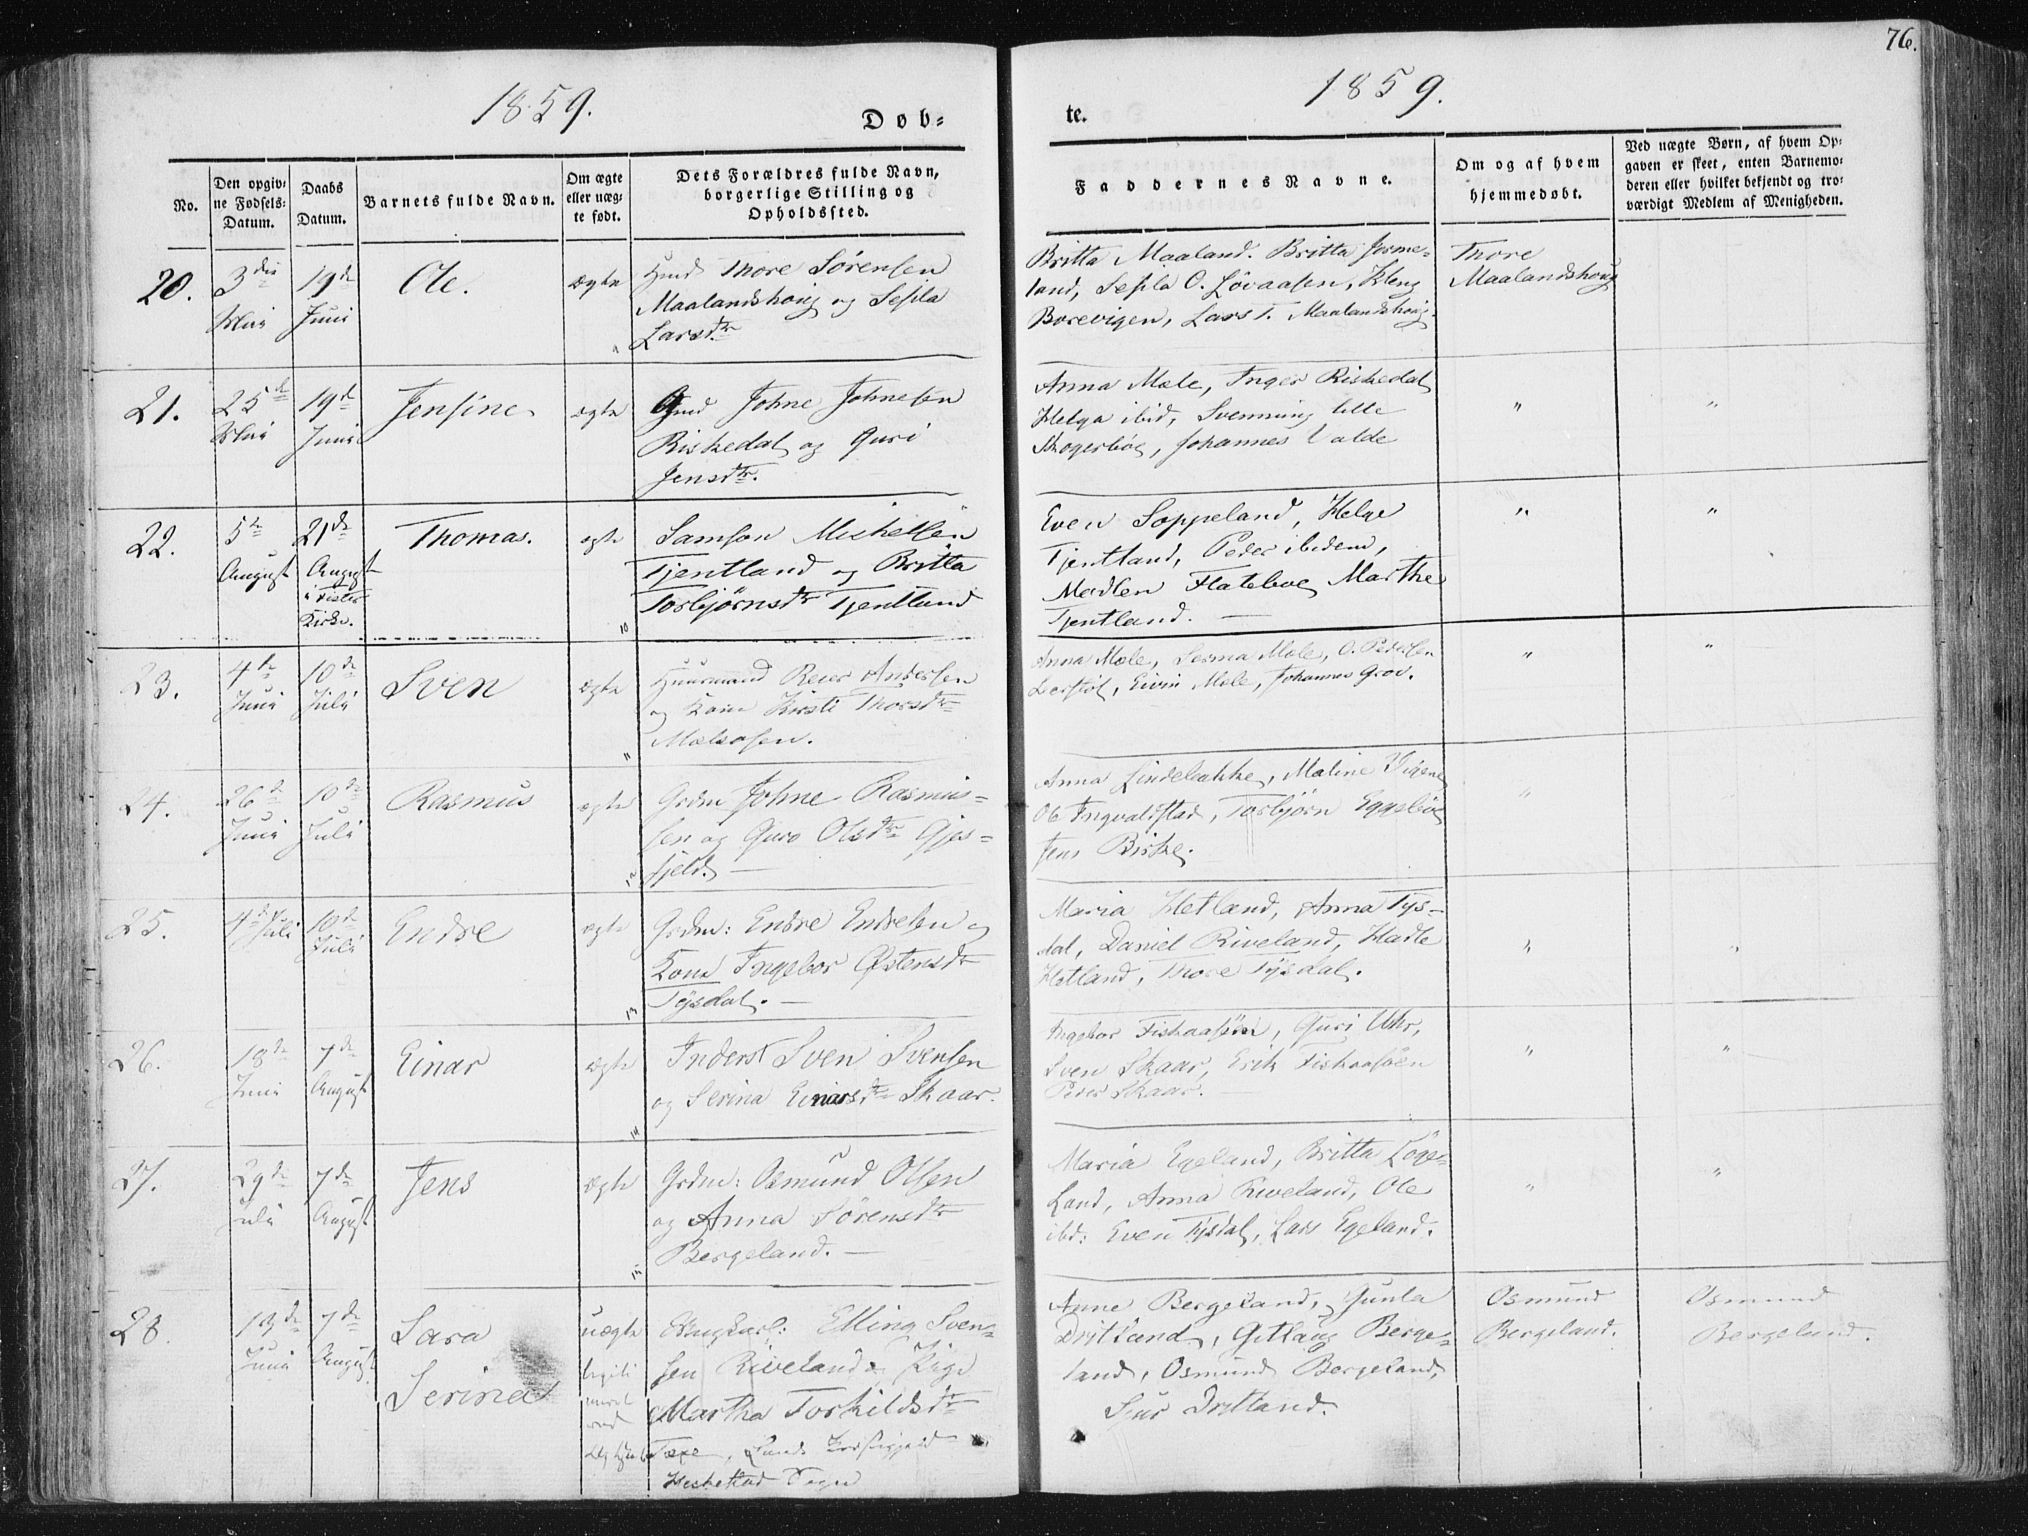 76.
1859.
Døb-
te.
1859.
No.
Den opgiv-
ne Fødsels-
Datum.
Daabs
Datum.
Barnets fulde Navn.
Om ægte
eller uæg-
te født.
Dets Forældres fulde Navn,
borgerlige Stilling og
Opholdssted.
Faddernes Navne.
Om og af hvem
hjemmedøbt.
Ved uægte Børn, af hvem Op-
gaven er skeet, enten Barnemo-
deren eller hvilket bekjendt og tro-
værdigt Medlem af Menigheden.
20.
3die
Mai
19de
Juni
Ole.
ægte
Huusm Thore Sørensen
Maalandshoug og Sesila
Larsdtr
Britta Maaland. Britta Jorme-
land, Sesila O. Løvaasen, Kleng
Borevigen, Lars T. Maalandshoug.
Thore
Maalandshoug
21.
25de
Mai
19de
Juni
Jensine
ægte
Gmd Johne Johnesen
Riskedal og Guri
Jensdtr.
Anna Mæle, Inger Riskedal
Helga ibid, Svenning lille
Skogerbøe, Johannes Valde
"
"
22.
5te
August
21de
August
i Fister
Kirke.
Thomas.
ægte
10
Samson Michelsen
Tjentland og Britta
Torbjørnsdtr Tjentland
Even Soppeland, Helge
Tjentland, Peder ibidem,
Madlen Flatebøe, Marthe
Tjentland. —
"
"
23.
4de
Juni
10de
Juli
Sven
ægte
11
Huusmand Reier Andersen
og Kone Kirsti Thorsdtr
Mælsosen.
Anna Mæle, Serina Mæle, O. Pedersen
Eivin Mæle, Johannes Grov.
"
"
24.
26de
Juni
10de
Juli
Rasmus
ægte
12
Grdm Johne Rasmus-
sen og Guro Olsdtr Gjes-
fjeld. —
Anna Lindebække, Maline Vigene
Ole Ingvaldstad, Torbjørn Eggebøe
Jens Birke.
"
"
25.
4de Juli
10de
Juli
Endre
ægte
13
Grdm: Endre Endresen og
Kone Ingebor Østensdtr
Tysdal. —
Maria Hetland, Anna Tys-
dal, Daniel Riveland, Hadle
Hetland, Thore Tysdal.
"
"
26.
18de
Juni
7de
August
Einar
ægte
14
Inderst Sven Svensen
og Serina Einarsdtr Skaar.
Ingebor Fiskaasøen, Guri Uhr,
Sven Skaar, Erik Fiskaasøen
Peder Skaar. —
"
"
27.
29de
Juli
7de
August
Jens
ægte
15
Grdm: Osmund Olsen
og Anna Sørensdtr
Bergeland. —
Maria Egeland, Britta Løge-
Land, Anna Riveland, Ole
ibd: Even Tysdal, Lars Egeland.
"
"
28.
13de
Juni
7de
August
Sara
Serina
uægte
Ungkarl: Elling Sven-
sen Riveland & Pige
Martha Torkildsdtr
Heskestad Sogn
Anne Bergeland, Gunla
Dritland, Gitlaug Berge-
land, Osmund Bergeland,
Sjur Dritland.
Osmund
Bergeland.
Osmund
Bergeland.